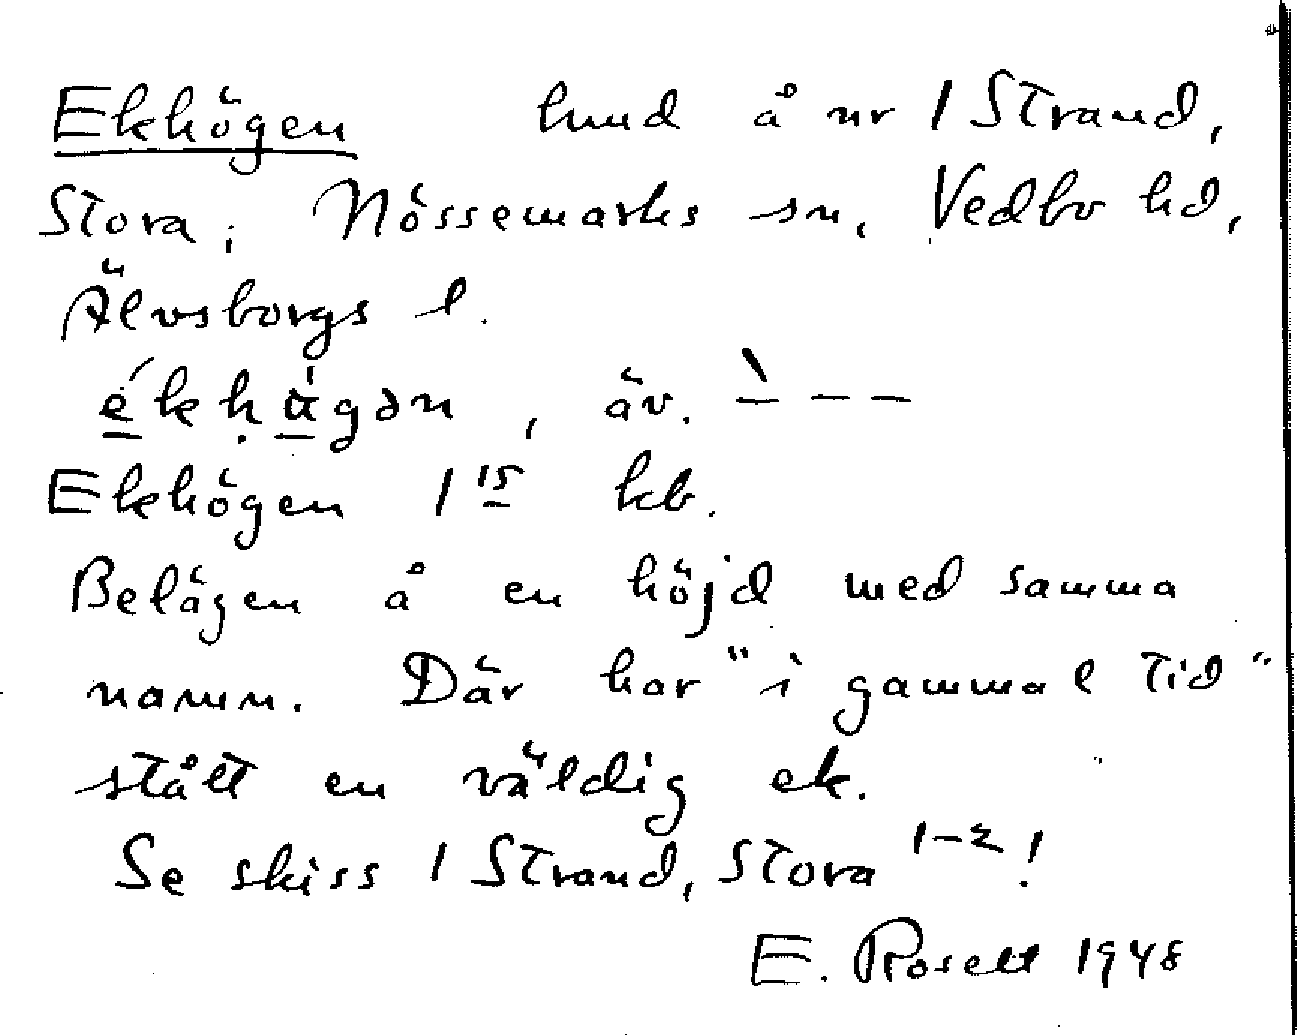 Ekhögen lund å nr 1 Strand,
Stora, Nössemarks sn, Vedbo hd,
Älvsborgs l.
ékhǜgən, äv. ̀– – –
Ekhögen 1 15 kb.
Belägen å en höjd med samma
namn. Där har "i gammal tid"
stått en väldig ek.
Se skiss 1 Strand, Stora 1-2!
E. Rosell 1948